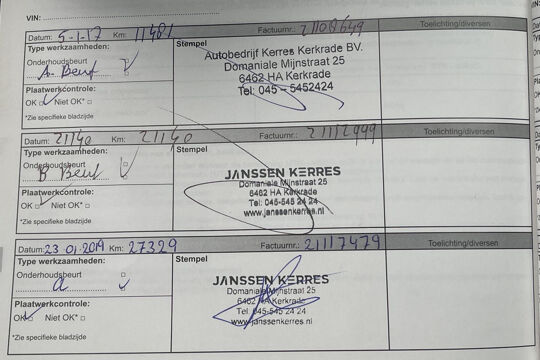 VIN:
Datum: 5-1-17 Km: 11481 Factuurnr.: Toelichting/diversen
Type werkzaamheden: Stempel
Onderhoudsbeurt
A. Beurt
Plaatwerkcontrole:
OK Niet OK*
*Zie specifieke bladzijde
Autobedrijf Kerres Kerkrade BV.
Domaniale Mijnstraat 25
6462 HA Kerkrade
Tel: 045 - 5452424
Datum: 21140 Km: 21140 Factuurnr.: 21112999 Toelichting/diversen
Type werkzaamheden: Stempel
Onderhoudsbeurt
B Beurt
Plaatwerkcontrole:
OK Niet OK*
*Zie specifieke bladzijde
JANSSEN KERRES
Domaniale Mijnstraat 25
6462 HA Kerkrade
Tel: 045-545 24 24
www.janssenkerres.nl
Datum: 23 01 2019 Km: 27329 Factuurnr.: 21117479 Toelichting/diversen
Type werkzaamheden: Stempel
Onderhoudsbeurt
a
Plaatwerkcontrole:
OK Niet OK*
*Zie specifieke bladzijde
JANSSEN KERRES
Domaniale Mijnstraat 25
6462 HA Kerkrade
Tel: 045-545 24 24
www.janssenkerres.nl